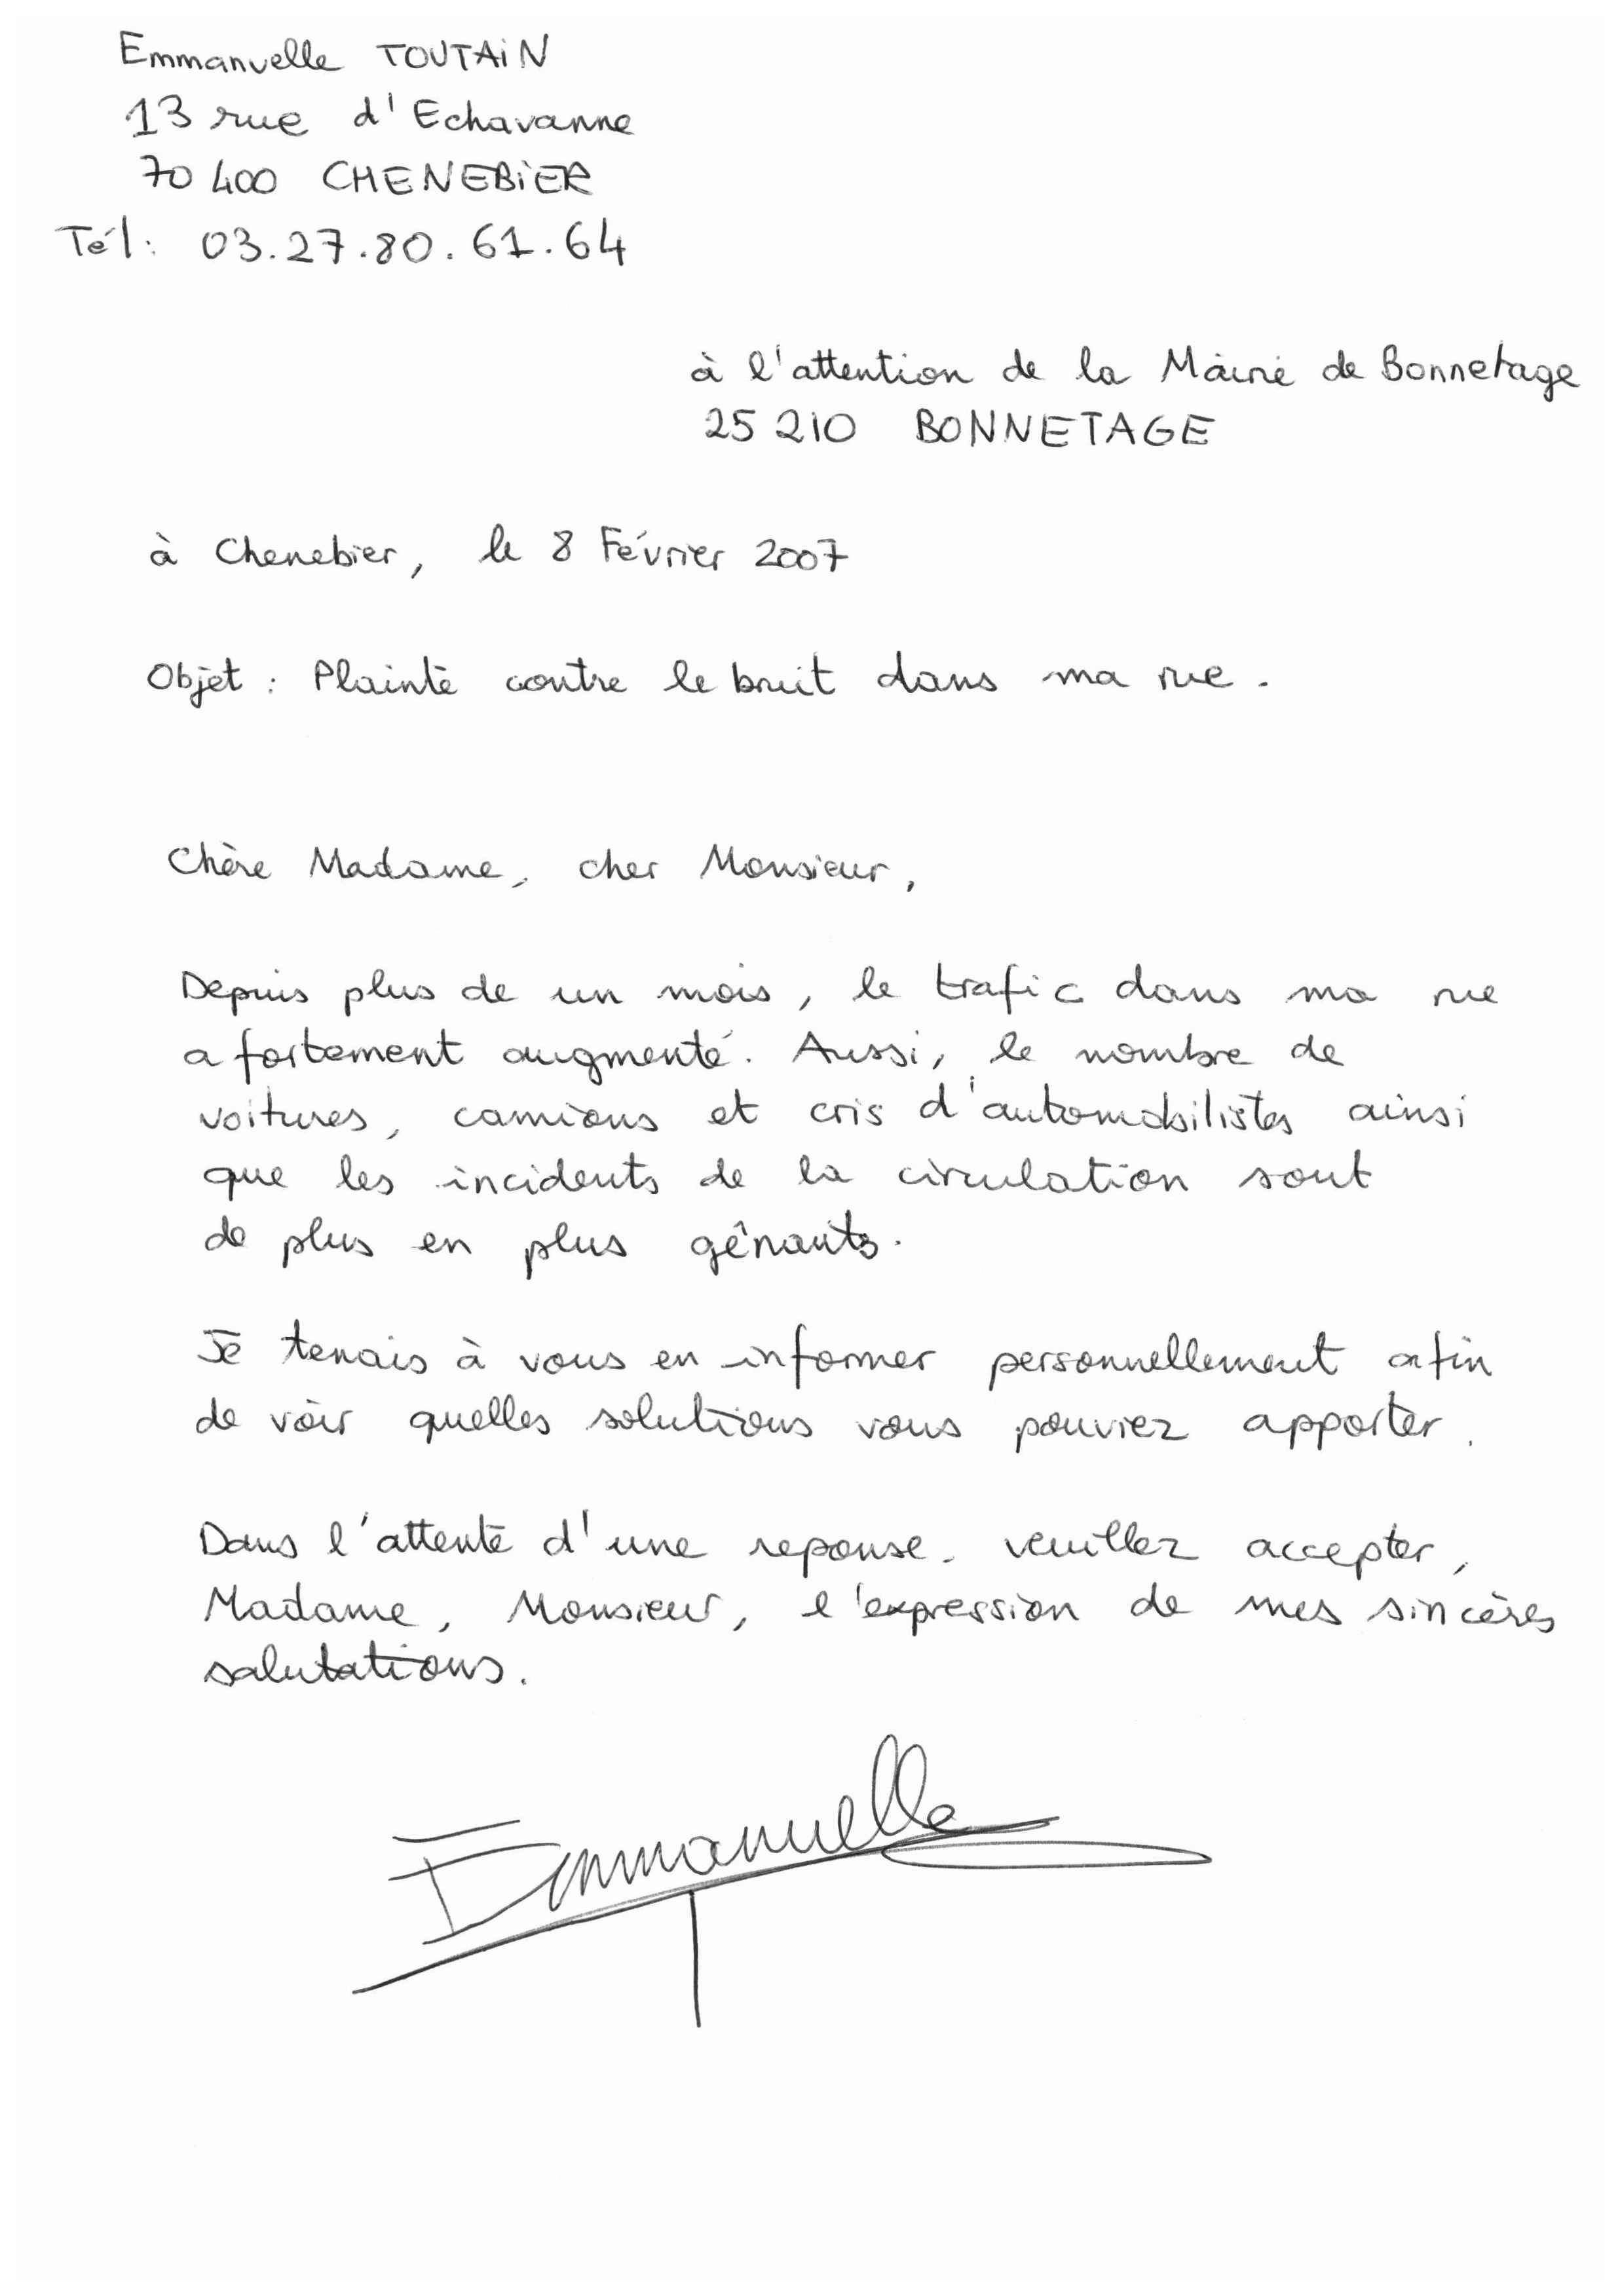 Emmanuelle TOUTAIN
13 rue d'Echavanne
70 400 CHENEBIER
Tél : 03.27.80.61.64
à l'attention de la Mairie de Bonnetage
25 210 BONNETAGE
à Chenebier, le 8 Février 2007
Objet : Plainte contre le bruit dans ma rue.
Chère Madame, cher Monsieur,
Depuis plus de un mois, le trafic dans ma rue
a fortement augmenté. Aussi, le nombre de
voitures, camions et cris d'automobilistes ainsi
que les incidents de la circulation sont
de plus en plus gênants.
Je tenais à vous en informer personnellement afin
de voir quelles solutions vous pouviez apporter.
Dans l'attente d'une reponse, veuillez accepter,
Madame, Monsieur, l'expression de mes sincères
salutations.
Emmanuelle